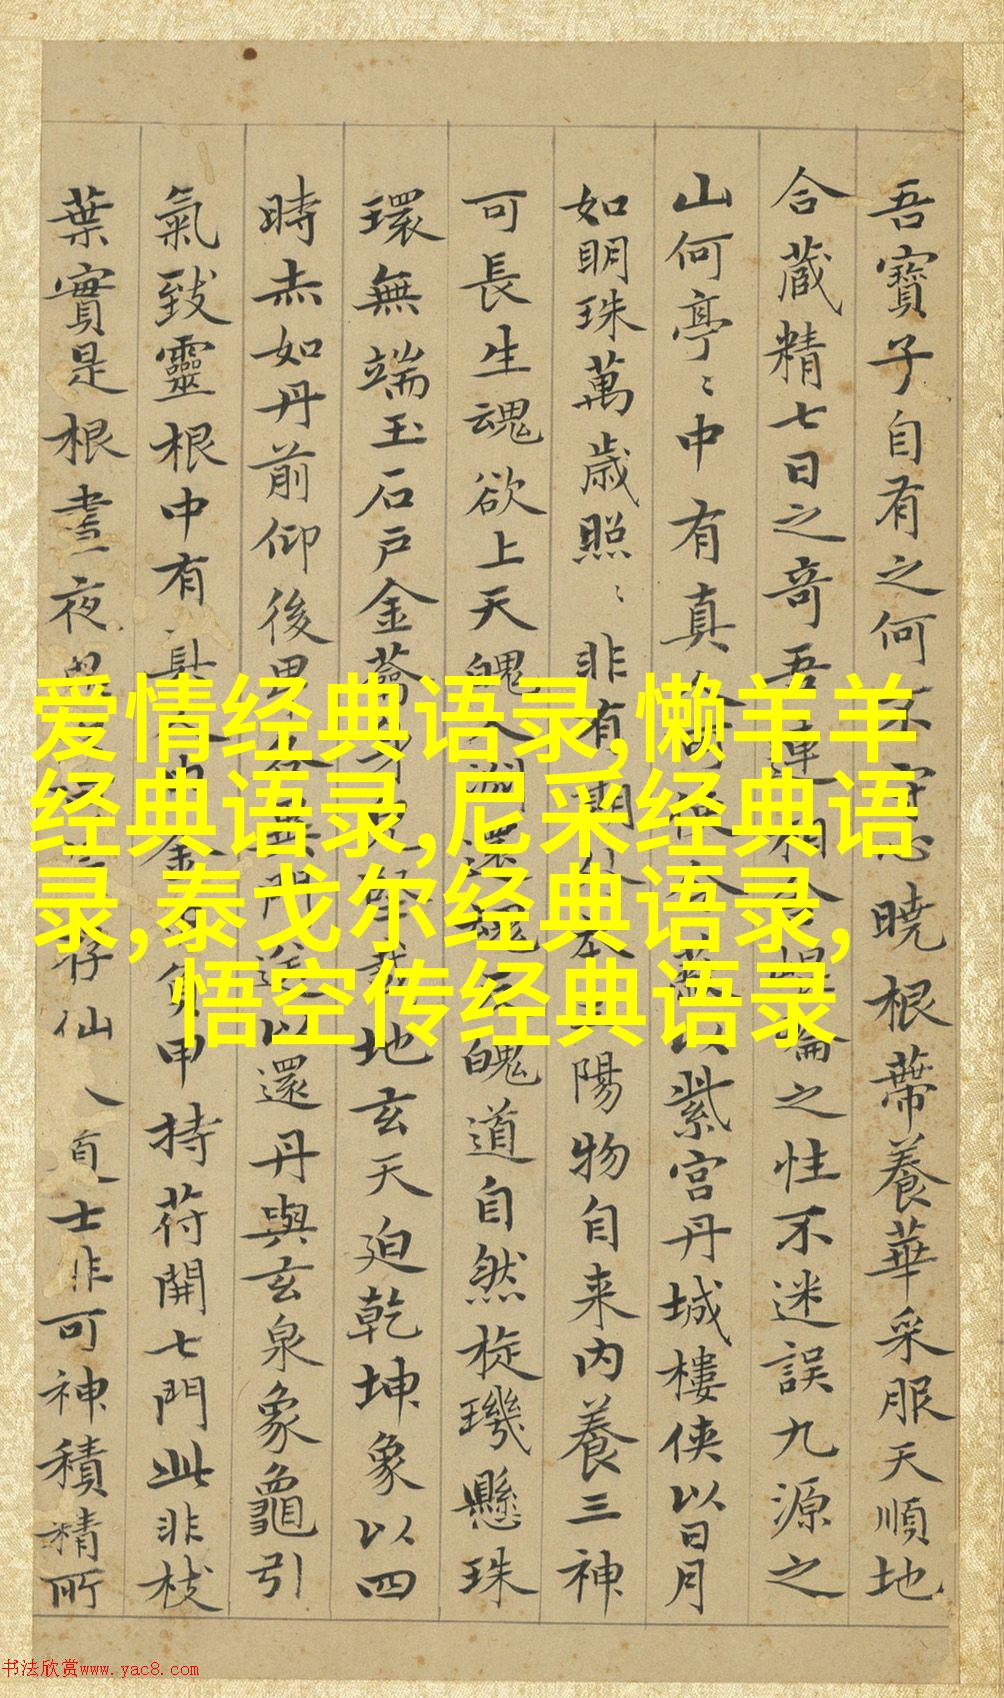 吾寶子自有之何不守心曉根蒂養華采服天順地
合藏精七日之奇吾連相合崘之性不迷誤九源之
山何亭〻中有真人以紫宮丹城樓俠以日月
如明珠萬歲照〻非有期外本陽物自来內養三神
可長生魂欲上天魄入淵還魂魄道自然旋璣懸珠
環無端玉石戶金籥堅載地玄天迫乾坤象以四
時赤如丹前仰後卑各異門送以還丹與玄泉象龜引
氣致靈根中有真人巾金巾負甲持苻開七門此非枝
葉實是根晝夜思存仙人道士非可神積精所
爱情经典语录,懒羊羊
经典语录,尼采经典语
录,泰戈尔经典语录,
悟空传经典语录
书法欣赏www.yac8.com